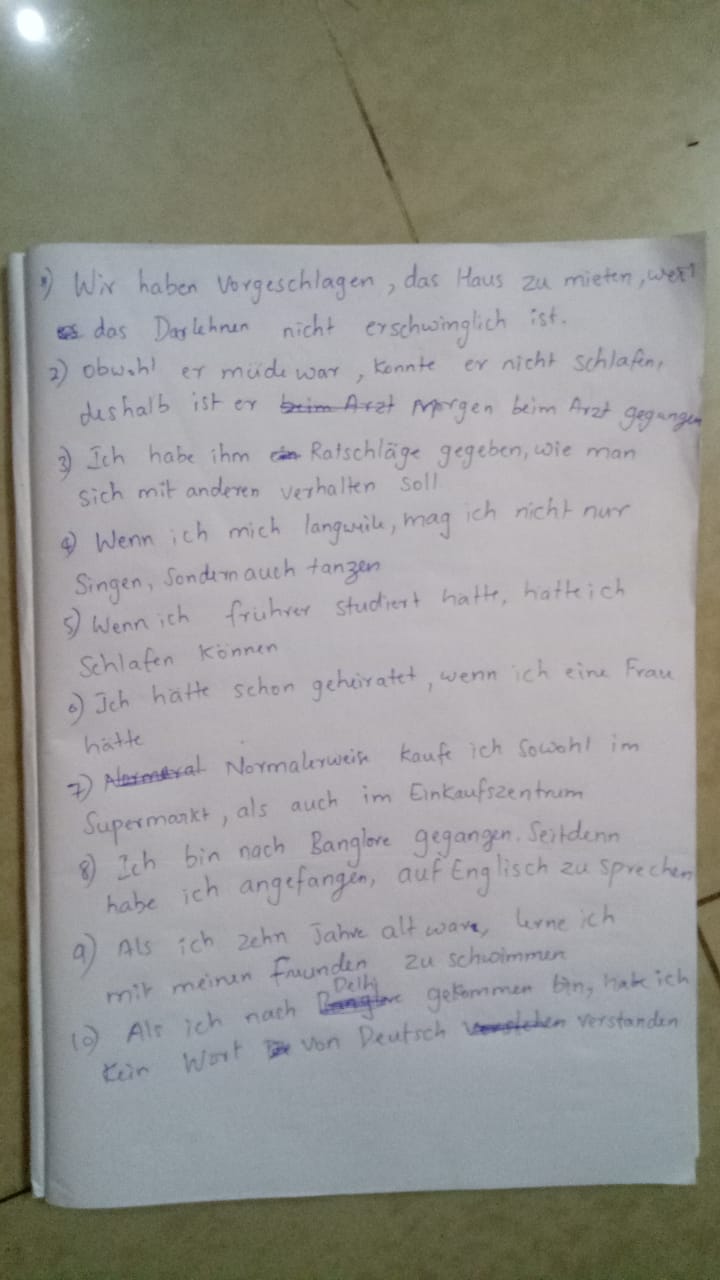 1) Wir haben Vorgeschlagen, das Haus zu mieten, weil
das Darlehnen nicht erschwinglich ist.
2) obwohl er müde war, konnte er nicht schlafen,
deshalb ist er beim Arzt Morgen beim Arzt gegangen
3) Ich habe ihm ein Ratschläge gegeben, wie man
sich mit anderen verhalten soll
4) Wenn ich mich langweile, mag ich nicht nur
Singen, Sondern auch tanzen
5) Wenn ich frührer studiert hatte, hatte ich
Schlafen können
6) Ich hätte schon geheiratet, wenn ich eine Frau
hätte
7) Normeral Normalerweise kaufe ich sowohl im
Supermarkt, als auch im Einkaufszentrum
8) Ich bin nach Banglore gegangen. Seitdenn
habe ich angefangen, auf Englisch zu sprechen
9) Als ich zehn Jahre alt ware, lerne ich
mit meinen freunden zu schwimmen
10) Als ich nach Banglore Delhi gekommen bin, habe ich
Kein Wort von Deutsch verstehen verstanden